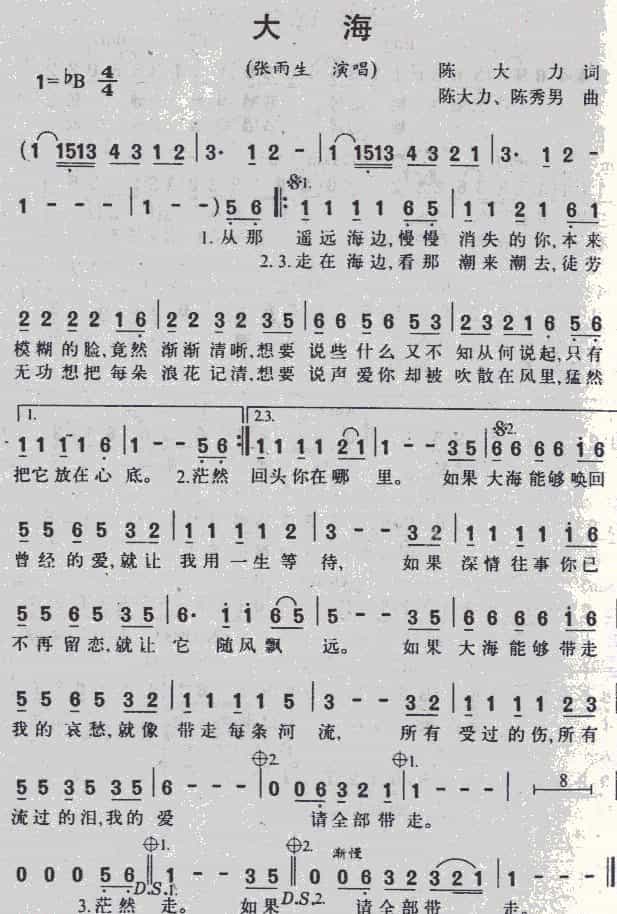 大 海
1=♭B 4/4 (张雨生 演唱) 陈 大 力 词
陈大力、陈秀男 曲
(1 1513 4 3 1 2 | 3· 1 2 - | 1 1513 4 3 2 1 | 3· 1 2 -
1 - - - | 1 - - ) 5 6 𝄋1. ‖: 1 1 1 1 6 5 | 1 1 2 1 6 1
1.从那 遥远海边,慢慢 消失的你,本来
2.3.走在海边,看那 潮来潮去,徒劳
2 2 2 2 1 6 | 2 2 3 2 3 5 | 6 6 5 6 5 3 | 2 3 2 1 6 5 6
模糊的脸,竟然 渐渐清晰,想要 说些什么又不 知从何说起,只有
无功想把每朵 浪花记清,想要 说声爱你却被 吹散在风里,猛然
1. 2.3.
1 1 1 1 6 | 1 - - 5 6 :‖ 1 1 1 1 2 1 | 1 - - 3 5 | 𝄋2. 6 6 6 6 1 6
把它放在心 底。 2.茫然 回头你在哪 里。 如果 大海能够唤回
5 5 6 5 3 2 | 1 1 1 1 2 | 3 - - 3 2 | 1 1 1 1 1 6
曾经的爱,就让 我用一生等 待, 如果 深情往事你已
5 5 6 5 3 5 | 6· 1 1 6 5 | 5 - - 3 5 | 6 6 6 6 1 6 |
不再留恋,就让 它 随风飘 远。 如果 大海能够带走
5 5 6 5 3 2 | 1 1 1 1 5 | 3 - - 3 2 | 1 1 1 1 2 3 |
我的哀愁,就像 带走每条河 流, 所有 受过的伤,所有
𝄌2. 𝄌1.
5 5 3 5 3 5 | 6 - - - | 0 0 6 3 2 1 | 1 - - - | 8
流过的泪,我的 爱 请全部带 走。
𝄌1. 𝄌2. 渐慢
0 0 0 5 6 ‖ 1 - - 3 5 ‖ 0 0 6 3 2 3 2 1 | 1 - - - ‖
D.S.1. D.S.2.
3.茫然 走。 如果 请全部带 走。